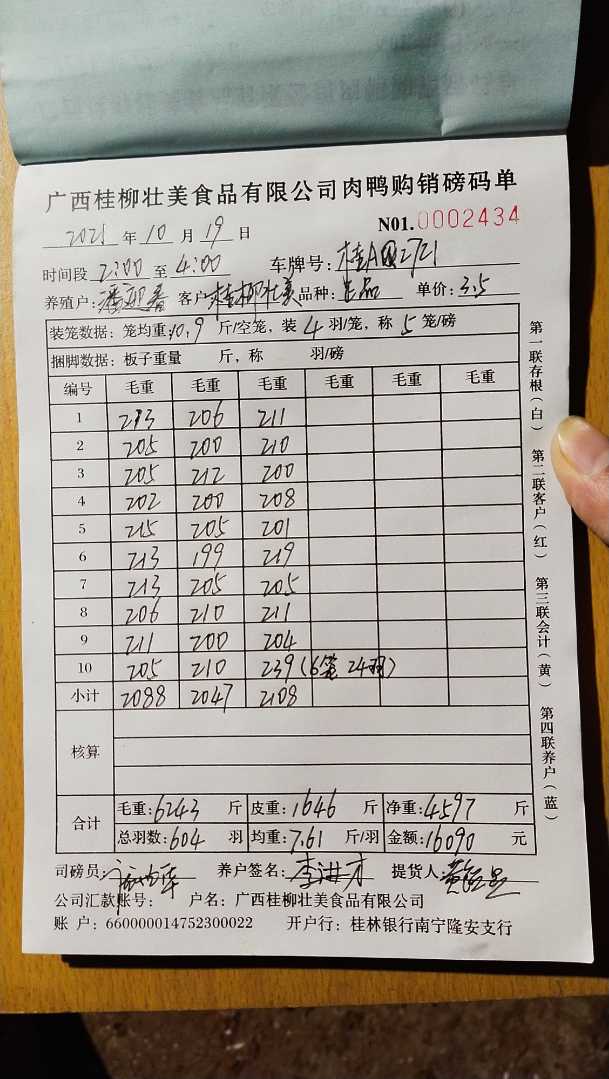 广西桂柳壮美食品有限公司肉鸭购销磅码单
2021 年 10 月 19 日 N01.0002434
时间段 2:00 至 4:00 车牌号: 桂A 2721
养殖户: 潘迎春 客户 桂柳壮美 品种: 单价: 3.5
装笼数据: 笼均重: 10.9 斤/空笼, 装 4 羽/笼, 称 5 笼/磅
捆脚数据: 板子重量 斤, 称 羽/磅
编号 毛重 毛重 毛重 毛重 毛重 毛重
1 213 206 211
2 205 200 210
3 205 212 200
4 202 200 208
5 215 205 201
6 213 199 219
7 213 205 205
8 206 210 211
9 211 200 204
10 205 210 239 (6笼 24羽)
小计 2088 2047 2108
核算
合计 毛重: 6243 斤 皮重: 1646 斤 净重: 4597 斤
总羽数: 604 羽 均重: 7.61 斤/羽 金额: 16090 元
司磅员: 养户签名: 李进才 提货人:
公司汇款账号: 户名: 广西桂柳壮美食品有限公司
账 户: 660000014752300022 开户行: 桂林银行南宁隆安支行
第一联存根(白) 第二联客户(红) 第三联会计(黄) 第四联养户(蓝)